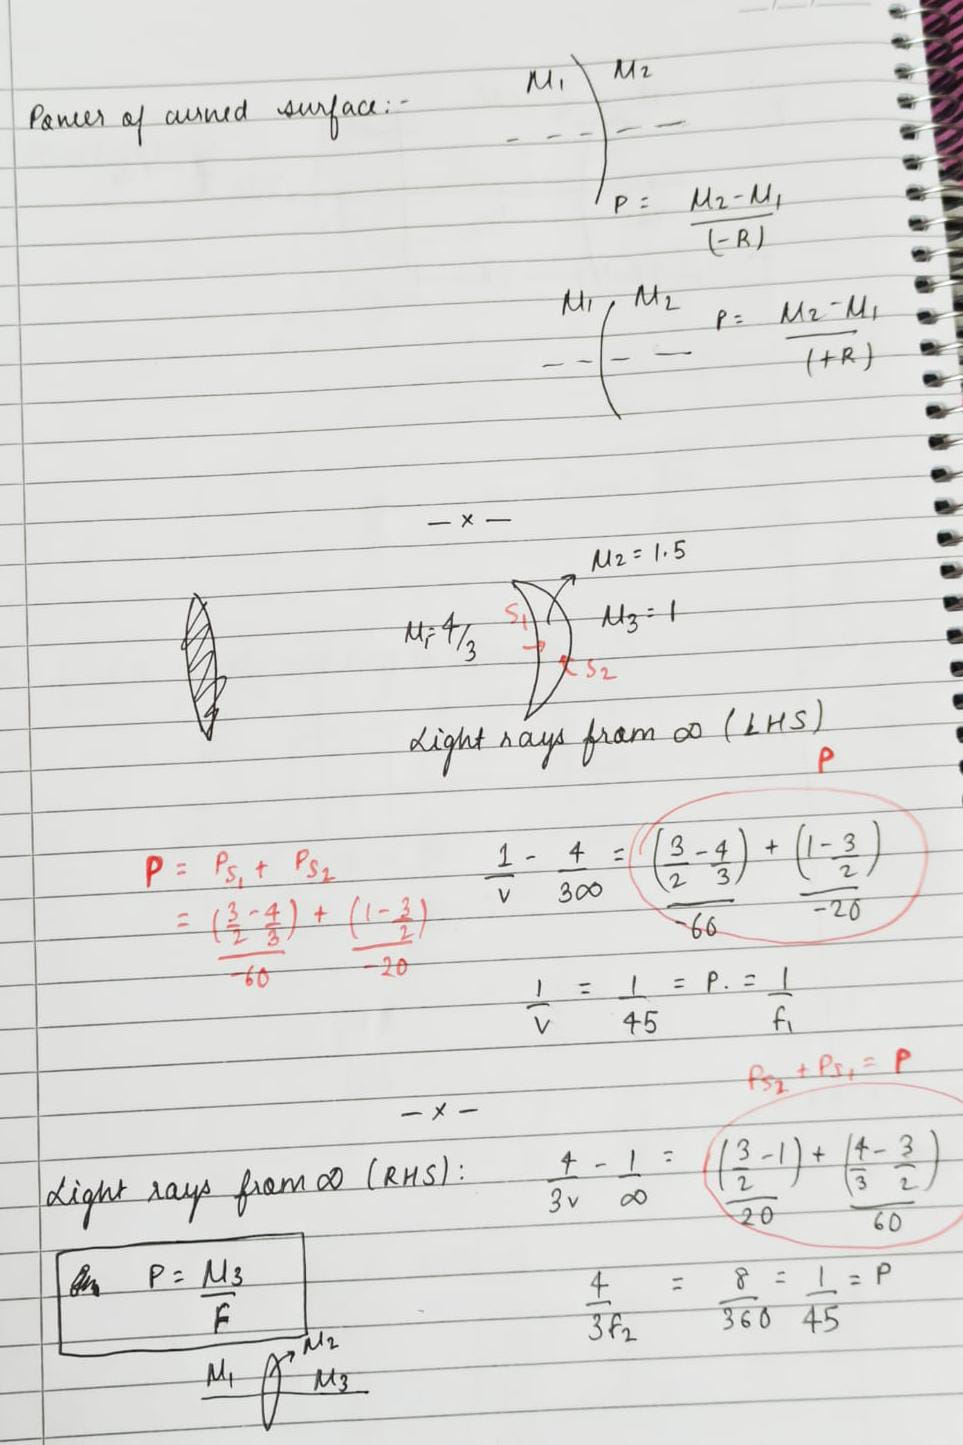 Power of curved surface:-
M₁ M₂
P = (M₂-M₁)/(-R)
M₁ M₂
P = (M₂-M₁)/(+R)
— x —
M₂ = 1.5
M₁ = 4/3
S₁
M₃ = 1
S₂
Light rays from ∞ (LHS)
P
1/v - 4/3∞ = (3/2 - 4/3)/-60 + (1 - 3/2)/-20
P = Ps₁ + Ps₂
= (3/2 - 4/3)/-60 + (1 - 3/2)/-20
1/v = 1/45 = P. = 1/f₁
Ps₂ + Ps₁ = P
— x —
Light rays from ∞ (RHS):
4/3v - 1/∞ = (3/2 - 1)/20 + (4/3 - 3/2)/60
P = M₃/F
4/3f₂ = 8/360 = 1/45 = P
M₂
M₁ M₃